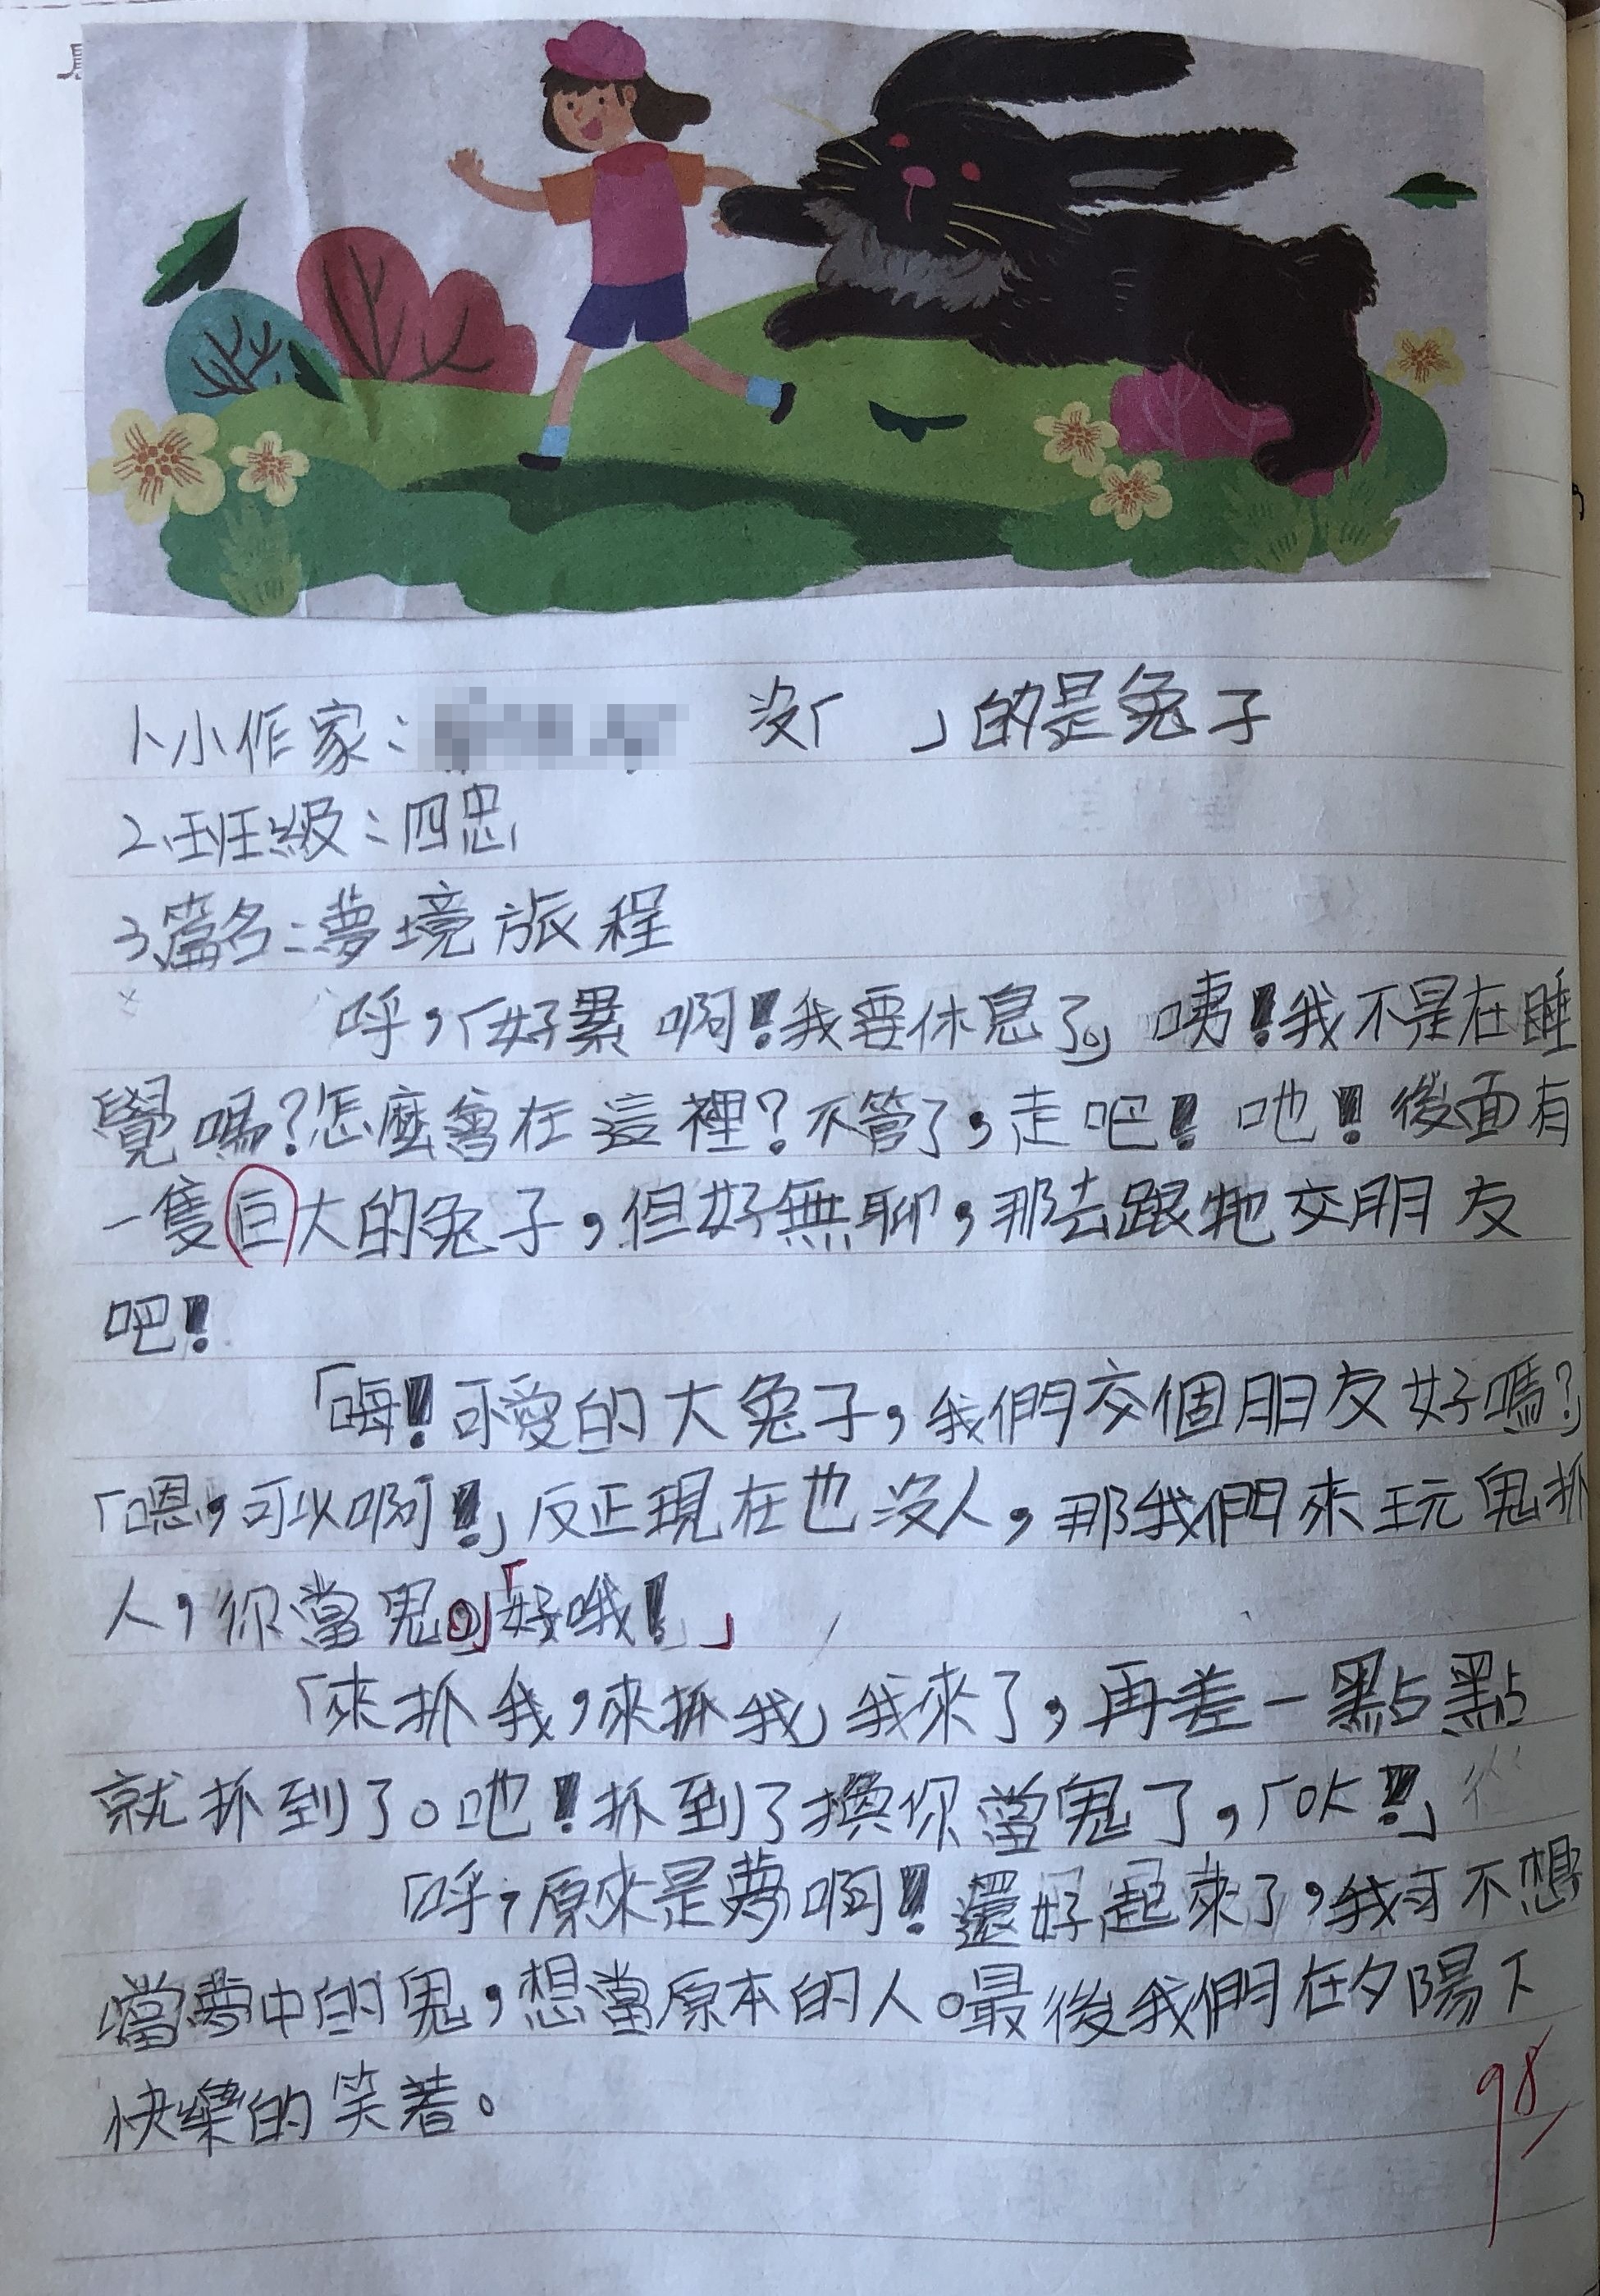 1、小作家：
沒「　」的是兔子
2、班級：四忠
3、篇名：夢境旅程
呼，「好累啊！我要休息了。」咦！我不是在睡
覺嗎？怎麼會在這裡？不管了，走吧！吔！後面有
一隻巨大的兔子，但好無聊，那去跟牠交朋友
吧！
「嗨！可愛的大兔子，我們交個朋友好嗎？」
「嗯，可以啊！」反正現在也沒人，那我們來玩鬼抓
人，你當鬼。」「好哦！」
「來抓我，來抓我」我來了，再差一點點
就抓到了。吔！抓到了換你當鬼了，「OK！」
「呼，原來是夢啊！還好起來了，我可不想
當夢中的鬼，想當原本的人。最後我們在夕陽下
快樂的笑著。
98